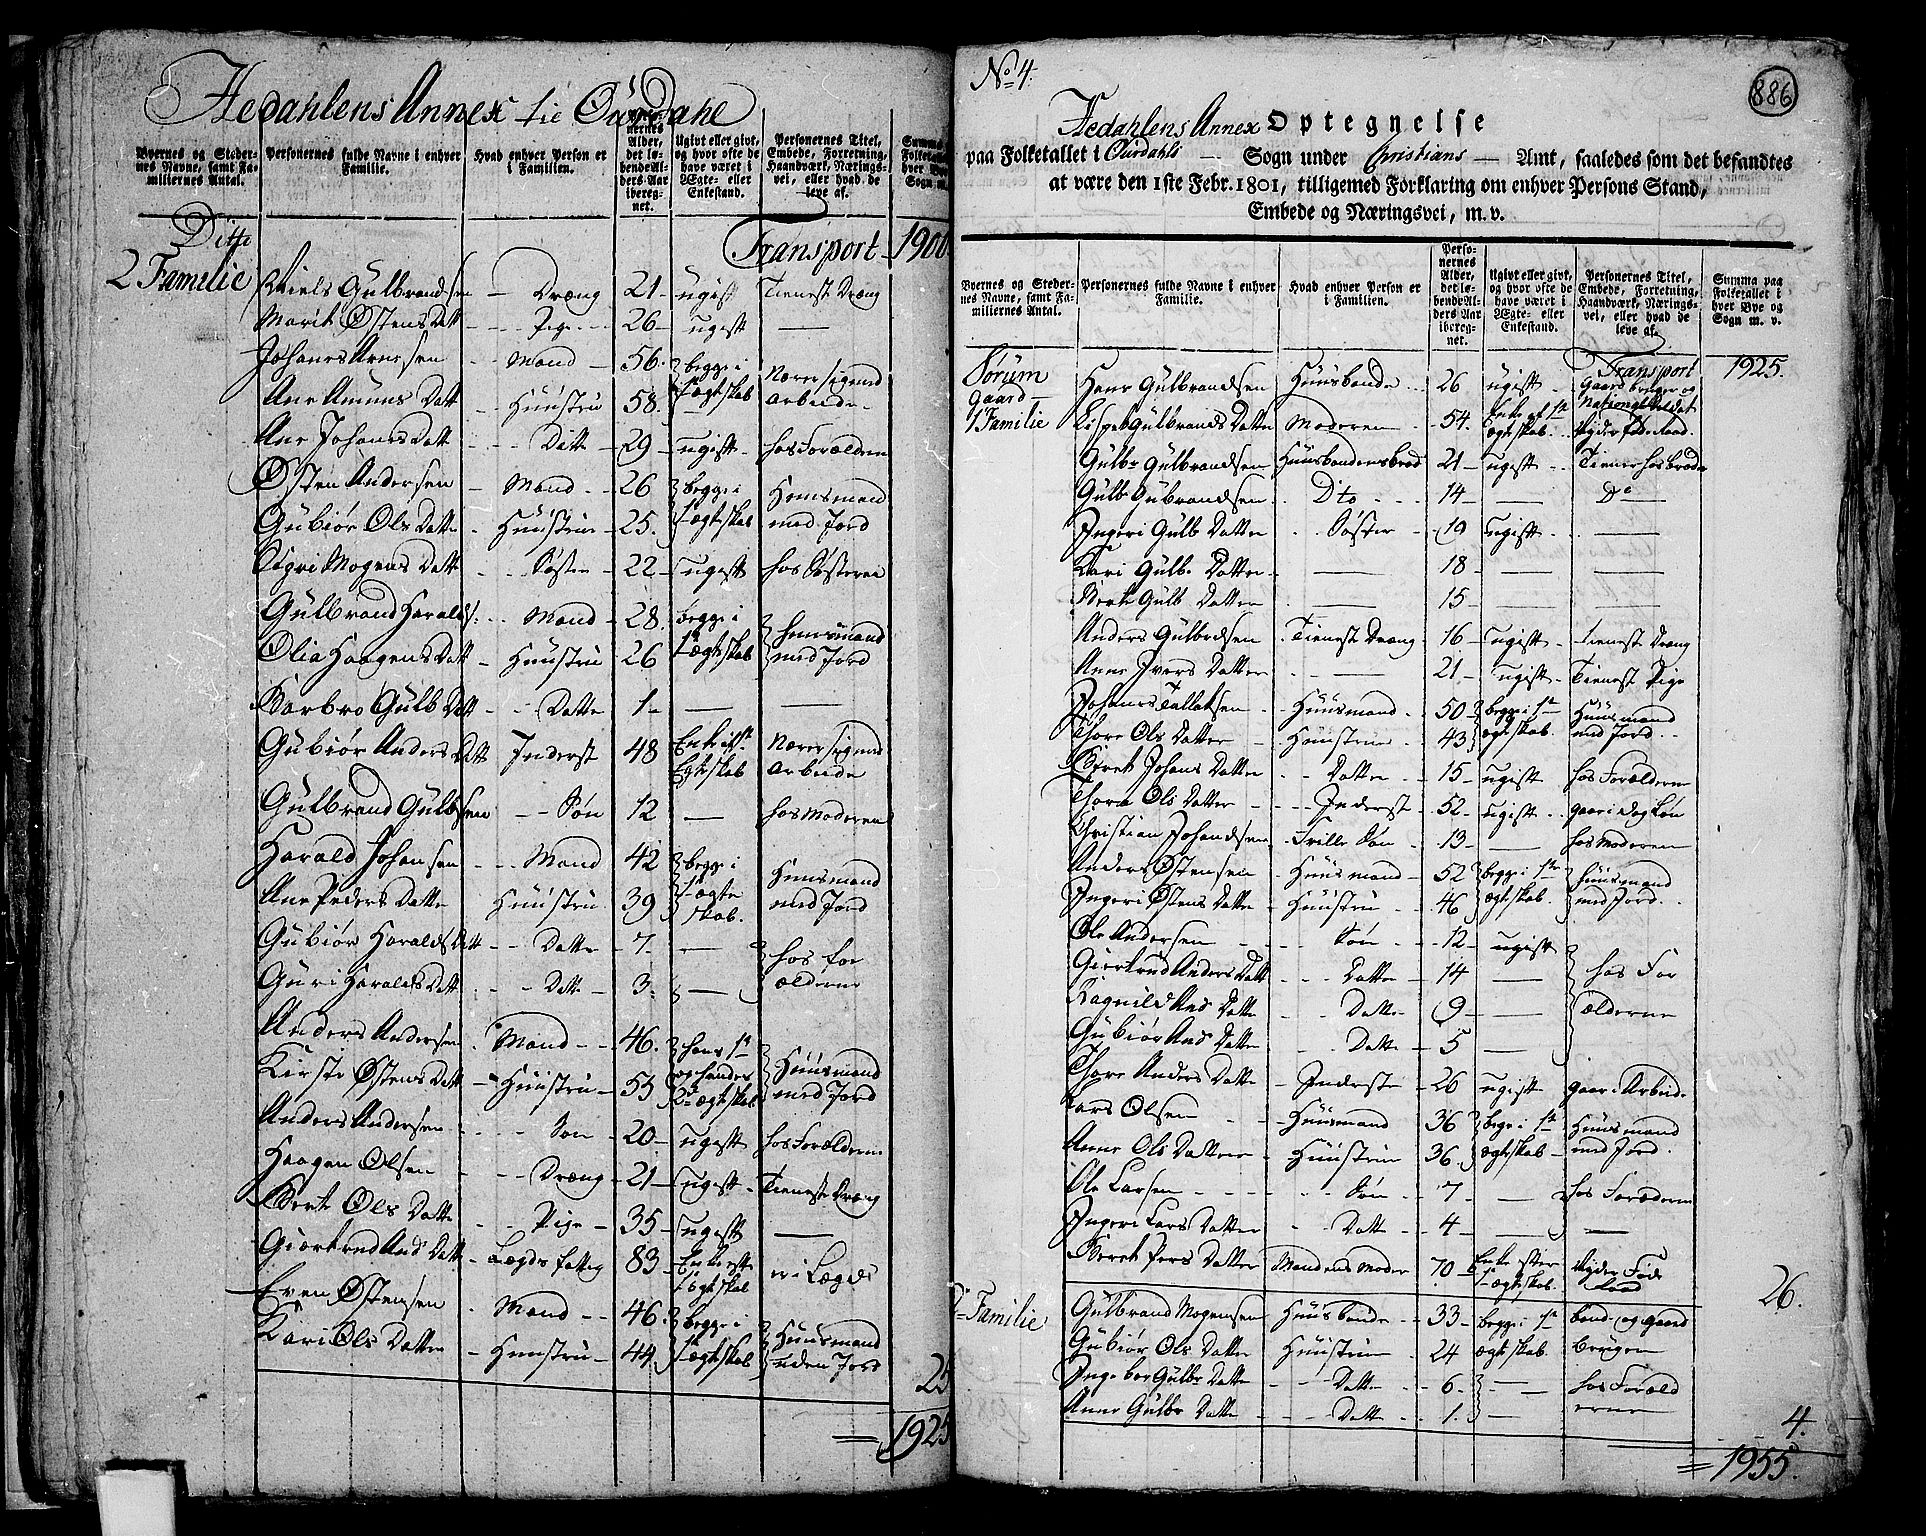 Hedahlens Annex til Ourdahl
Byernes og Stedernes Navne, samt Familiernes Antal.
Personernes fulde Navne i enhver Familie.
Hvad enhver Person er i Familien.
Personernes Alder, det løbende Alders Aar iberegnet.
Ugivt eller givt, og hvor ofte de have været i Ægte- eller Enkestand.
Personernes Titel, Embede, Forretning, Haandværk, Næringsvei, eller hvad de leve af.
Ditto Transport 1900
2 Familie Niels Gulbrandsen Dræng 21 ugift Tienest Dræng
Marit Østens Datt Pige 26 ugift —
Johanes Arnesen Mand 56 begge i 1ste Ægteskab Nærer sig med
Ane Amuns Datt Huustru 58 arbeide
Ane Johanes Datt Datte 29 ugift hos Forældren
Østen Andersen Mand 26 begge i Huusmand
Gubiør Ols Datte Huustrue 25 1ægteskab med Jord
Sigri Mogens Datt Søster 22 ugift hos Søsteren
Gulbrand Haralds. Mand 28 begge i huusmand
Olia Haagens Datt Huustru 26 1ægteskab med Jord
Barbro Gulb Datt Datte 1 — —
Gubiør Anders Datt Inderst 48 Enke i 1ste Egteskab Nærer sig med arbeide
Gulbrand Gulbsen Søn 12 — hos Moderen
Harald Johansen Mand 42 begge i Huusmand
Ane Peders Datte Huustru 39 1ægteskab. med Jord
Gubiør Haralds Datt Datte 7 — hos for
Guri Haralds Datt Datte 3 — ælderne
Anders Andersen Mand 46 hans 1ste Huusmand
Kirste Østens Datt Huustru 53 og hendes 2den ægteskab med Jord
Anders Andersen Søn 20 ugift hos Forælderne
Haagen Olsen Dræng 21 ugift Tieneste Dræng
Berte Ols Datte Pige 35 ugift —
Giørtrud And Datt Lægds fattig 83 Enke efte 1 ægteskab er i Lægd
Even Østensen Mand 46 begge i Huusmand
Kari Ols Datter Huustru 44 1ægteskab uden Jord
25
= 1925
No 4.
886
Hedahlens Annex Optegnelse
paa Folketallet i Ourdahls — Sogn under Christians — Amt, saaledes som det befandtes
at være den 1ste Febr. 1801, tilligemed Forklaring om enhver Persons Stand,
Embede og Næringsvei, m. v.
Byernes og Stedernes Navne, samt Familiernes Antal.
Personernes fulde Navne i enhver Familie.
Hvad enhver Person er i Familien.
Personernes Alder, det løbende Alders Aar iberegnet.
Ugivt eller givt, og hvor ofte de have været i Ægte- eller Enkestand.
Personernes Titel, Embede, Forretning, Haandværk, Næringsvei, eller hvad de leve af.
Summa paa Folketallet i hver Bye og Sogn m. v.
Transport 1925.
Sørum Gaard Hans Gulbrandsen Huusbonde 26 ugift Gaardbruger og National Soldat
1 Familie Lispet Gulbrands Datter Moderen 54 Enke ef 1ste ægteskab Nyder føderaad
Gulbr Gulbrandsen Huusbondens brod 21 ugift Tiener hos broder
Gulb Gubrandsen Dito 14 — do
Ingeri Gulb Datter Søster 19 ugift —
Kari Gulbr Datter — 18 — —
Berte Gulb Datter — 15 — —
Anders Gulbrdsen Tienest Dræng 16 ugift tienest Dræng
Anne Ivers Datter — 21 ugift Tienest Pige
Johanes Tallaksen Huusmand 50 begge i 1ste Huusmand
Thore Ols Datter Huustrue 43 ægteskab. med Jord.
Beret Johans Datter Datter 15 ugift hos Forælderne
Thora Ols Datter Inderst 52 ugift gaar i Dagløn
Christian Johandsen Frille Søn 13 — hos Moderen
Anders Østensen Huusmand 52 begge i 1ste huusmand
Ingeri Østens Datte Huustru 46 ægteskab. med Jord.
Ole Andersen Søn 12 ugift
Giertrud Anders Datt Datte 14 — hos For
Ragnild Ands Datte Datte 9 — ælderne
Gubiør And Datte Datte 5 —
Thore Anders Datte Inderste 26 ugift gaar i Arbeide
Lars Olsen Huusmand 36 begge i 1ste Huusmand
Anne Ols Datter Huustrue 36 ægteskab med Jord.
Ole Larsen Søn 7 — hos Forælderne
Ingeri Lars Datter Datt 4 — —
Beret Pers Datter Mandens Moder 70 Enke efter 1 ægteskab. Nyder Føderaad
26.
2 Familie Gulbrand Mogensen Huusbonde 33 begge i 1ste bonde og gaard
Gubiør Ols Datter Huustrue 24 ægteskab Bruger
Ingebor Gulbr Datte Datte 6 — hos Foræld
Anne Gulbr Datte Datt 1 — erne
4.
= 1955.